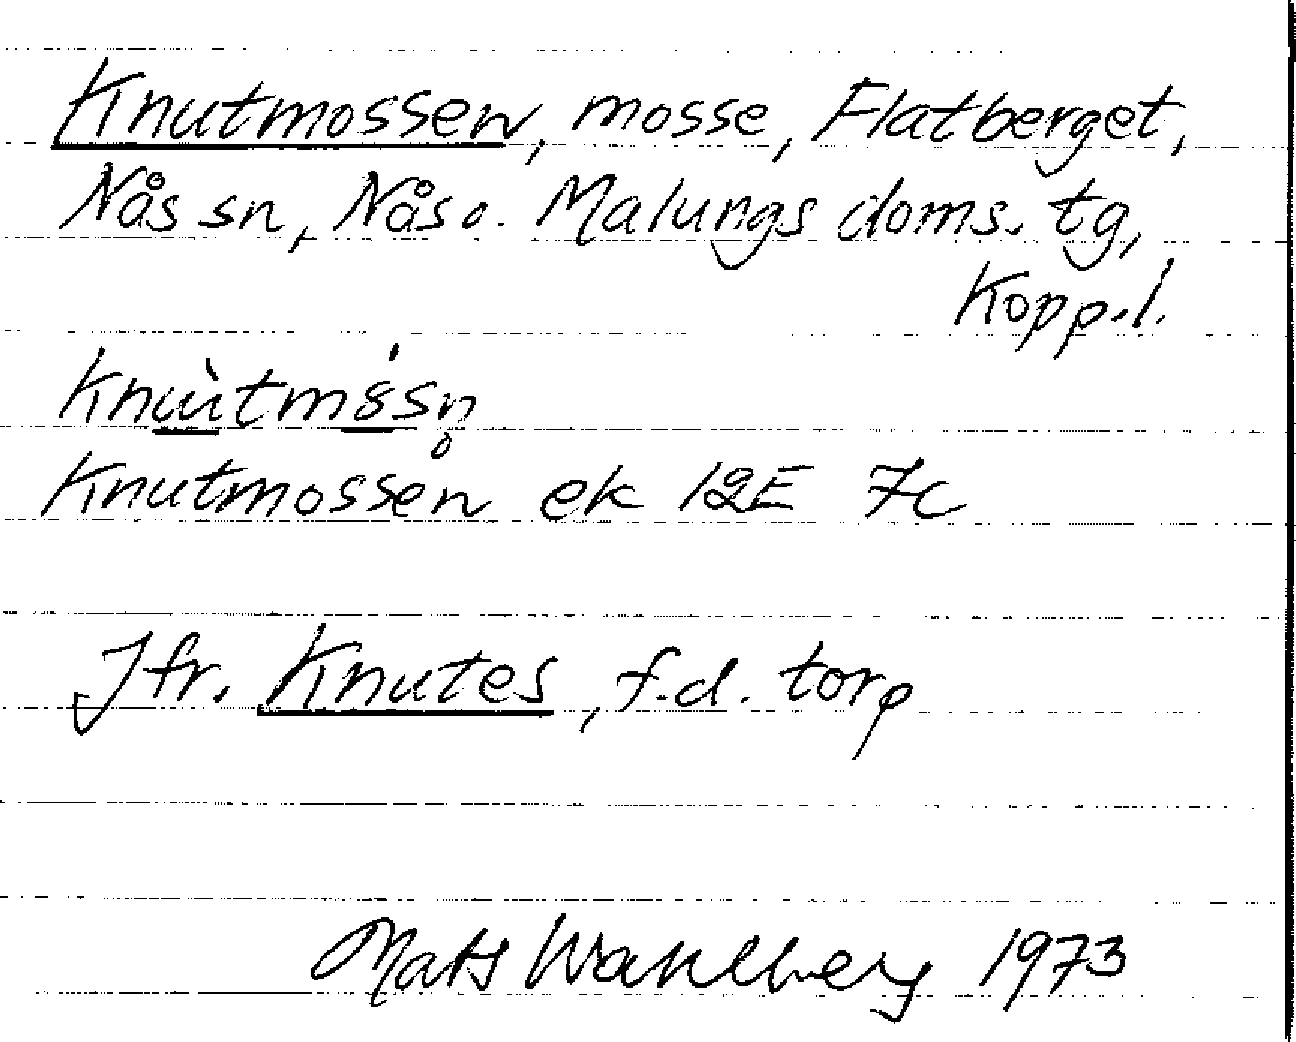 Knutmossen, mosse, Flatberget,
Nås sn, Nås o. Malungs doms. tg,
Kopp.l.
Knutmossen ek 12E 7c
Jfr. Knutes, f.d. torp
Mats Wahlberg 1973